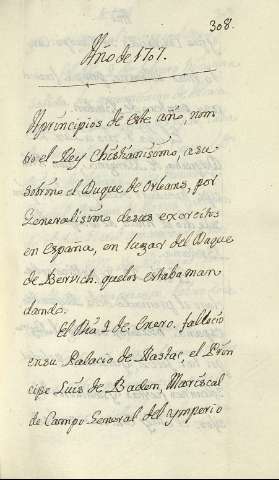 308.
Año de 1707.
A principios de este año, nom
bro el Rey Christianisimo, a su
sobrino el Duque de Orleans, por
Generalisimo desus exercitos
en España, en lugar del Duque
de Bervich. quelos estaba man
dando.
El Dia 4 de Enero. fallecio
ensu Palacio de Rastac, el Prin
cipe Luis de Baden, Mariscal
de Campo General del ymperio